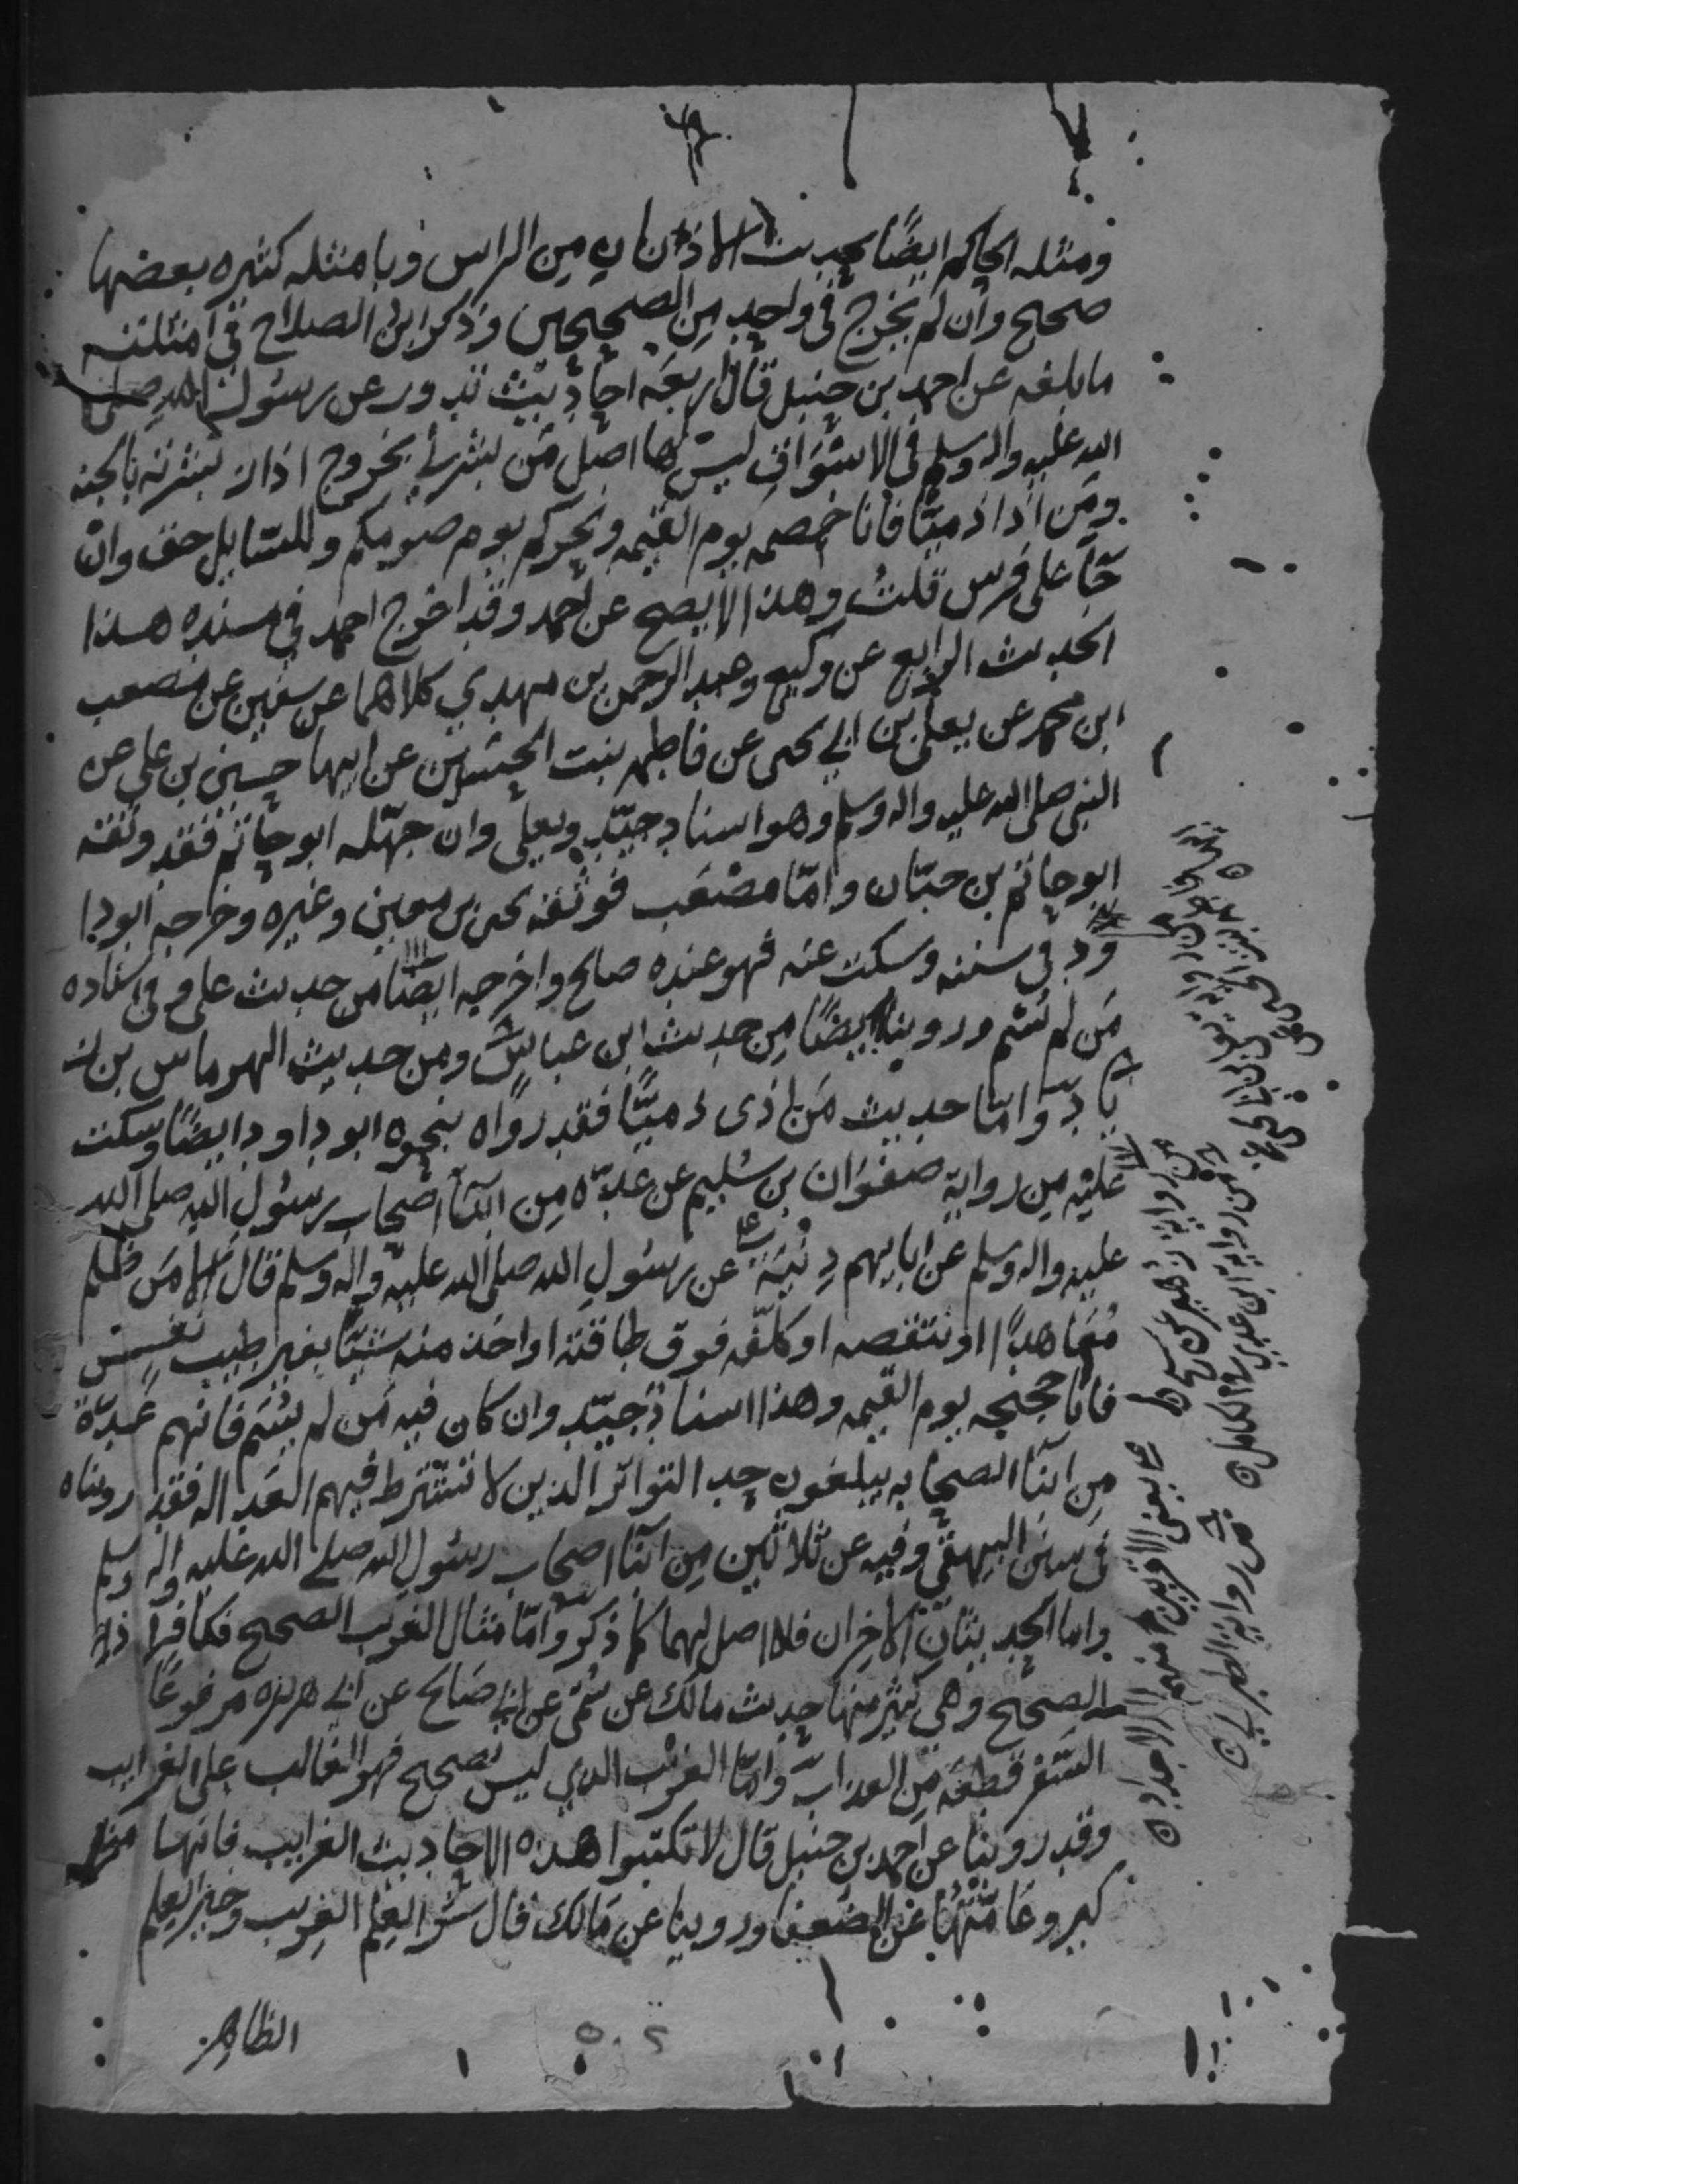 ومثله الحاكم ايضًا بحديث الاذنان من الراس وبامثله كثيره بعضها
صحيح وان لم يخرج في واحد من الصحيحين وذكر ابن الصلاح في امثلته
ما بلغه عن احمد بن حنبل قال اربعة احاديث تدور عن رسول الله صلى
الله عليه واله وسلم في الاسواق ليس لها اصل من بشرني بخروج اذار بشرته بالجنه
ومن اذا ذميًّا فانا خصمه يوم القيمه ونحركم يوم صومكم وللسايل حق وان
جآ على فرس قلت وهذا لا يصح عن احمد وقد اخرج احمد في مسنده هذا
الحديث الرابع عن وكيع وعبد الرحمن بن مهدي كلاهما عن سفين عن مصعب
ابن محمد عن يعلى بن ابي يحيى عن فاطمه بنت الحسين عن ابيها حسين بن علي عن
النبي صلى الله عليه واله وسلم وهو اسناد جيّد ويعلى وان جهّله ابو حاتم فقد وثقه
ابو حاتم بن حبّان وامّا مصعب فوثقه يحيى بن معين وغيره وخرجه ابودا
ود في سننه وسكت عنه فهو عنده صالح واخرجه ايضًا من حديث علي وفي اسناده
من لم يسم وروينا ايضًا من حديث ابن عباس ومن حديث الهرماس بن ز
ياد وامّا حديث من اذى ذميًّا فقد رواه بنحوه ابو داود ايضًا وسكت
عليه من رواية صفوان بن سليم عن عدّه من ابنآ اصحاب رسول الله صلى الله
عليه واله وسلم عن ابايهم دِنْيَةً عن رسول الله صلى الله عليه واله وسلم قال الا من ظلم
معاهدًا او نتقصه او كلّفه فوق طاقته او اخذ منه شيئًا بغير طيب نفس
فانا حجيجه يوم القيمه وهذا اسناد جيّد وان كان فيه من لم يسم فانهم عدّة
من ابنآ الصحابه يبلغون حد التواتر الذين لا تشترط فيهم العداله فقد رويناه
في سنن البيهقي وفيه عن ثلاثين من ابنآ اصحاب رسول الله صلى الله عليه واله وسلم
واما الحديثان الاخران فلا اصل لهما كما ذكر وامّا مثال الغريب الصحيح فكافراد
الصحيح وهي كثير منها حديث مالك عن سُمَيّ عن ابي صالح عن ابي هريره مرفوعًا
السّفر قطعه من العذاب وامّا الغريب الذي ليس بصحيح فهو الغالب على الغرايب
وقد روينا عن احمد بن حنبل قال لا تكتبوا هذه الاحاديث الغرايب فانها منا
كير وعامّتها عن الضعفا وروينا عن مالك قال شر العلم الغريب وخير العلم
الظاهر
من رواية زهير عن شيخ
من رواية ابن عدي في الكامل
من رواية الطبراني
يعني الاقربين منهم لا الاجداد
٥٠٢